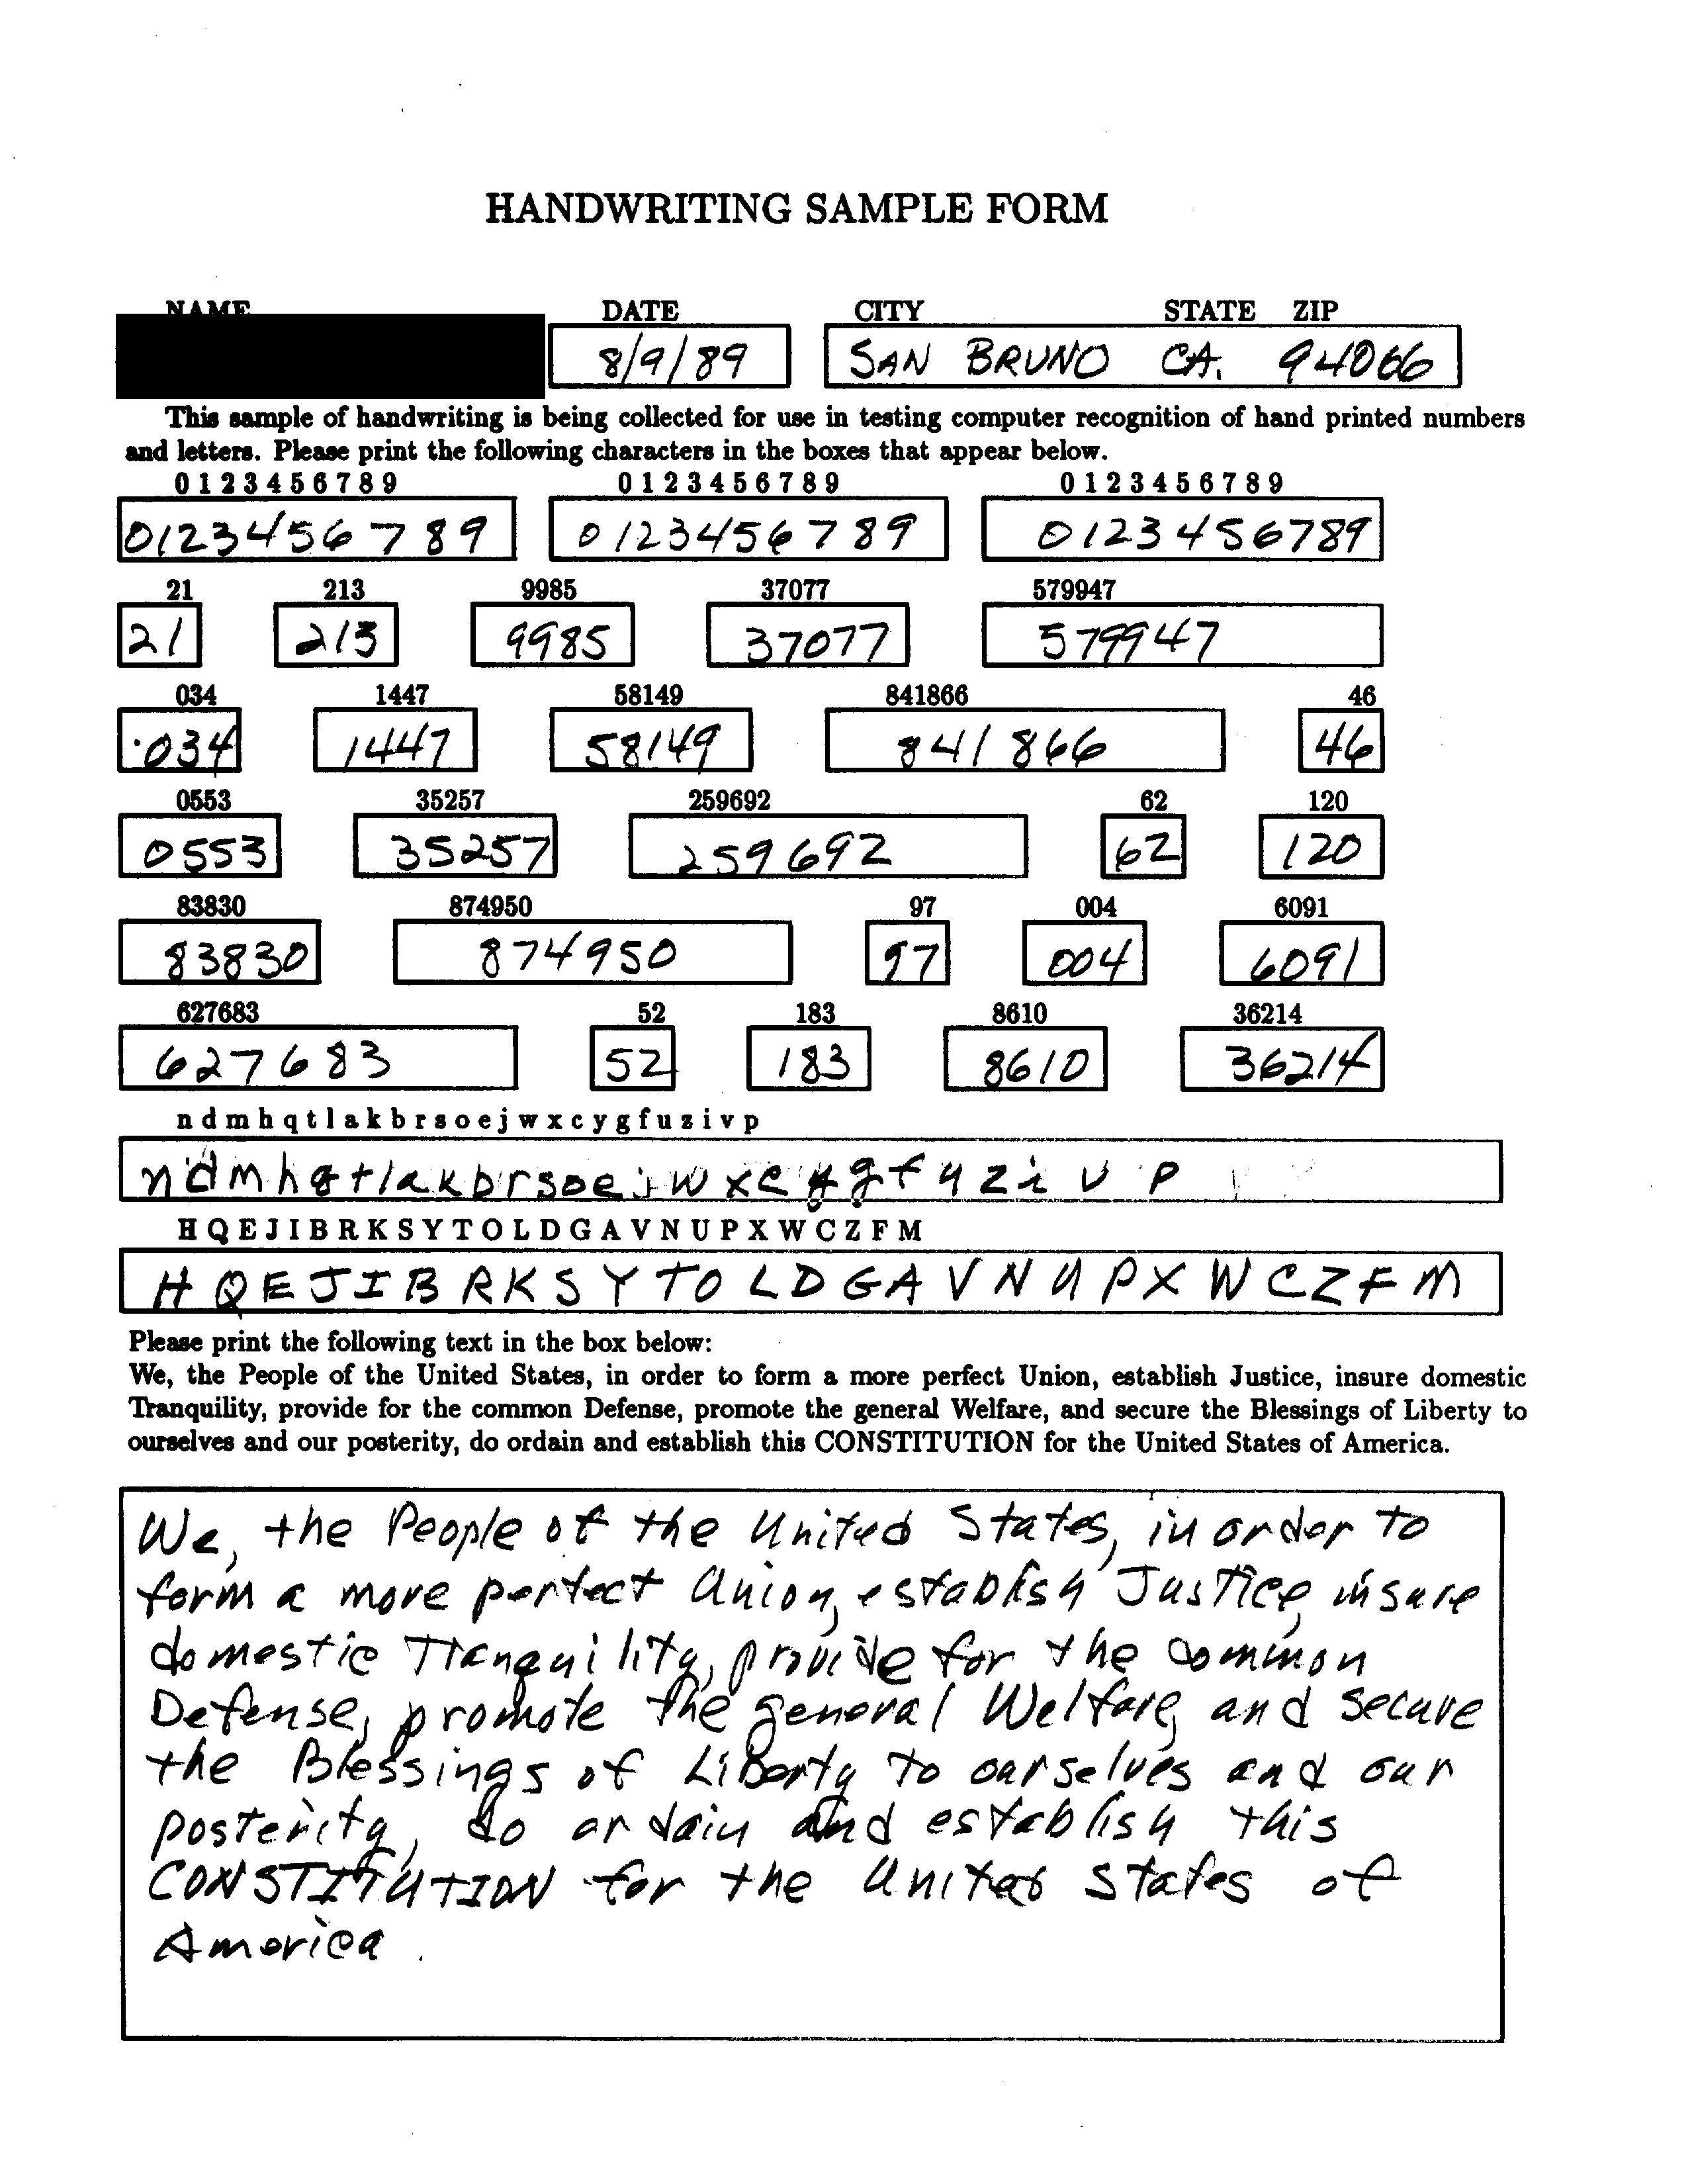 HANDWRITING SAMPLE FORM
NAME DATE CITY STATE ZIP
8/9/89 SAN BRUNO CA. 94066
This sample of handwriting is being collected for use in testing computer recognition of hand printed numbers
and letters. Please print the following characters in the boxes that appear below.
0 1 2 3 4 5 6 7 8 9 0 1 2 3 4 5 6 7 8 9 0 1 2 3 4 5 6 7 8 9
0123456789 0123456789 0123456789
21 213 9985 37077 579947
21 213 9985 37077 579947
034 1447 58149 841866 46
034 1447 58149 841866 46
0553 35257 259692 62 120
0553 35257 259692 62 120
83830 874950 97 004 6091
83830 874950 97 004 6091
627683 52 183 8610 36214
627683 52 183 8610 36214
n d m h q t l a k b r s o e j w x c y g f u z i v p
n d m h q t l a k b r s o e j w x c y g f u z i v p
H Q E J I B R K S Y T O L D G A V N U P X W C Z F M
H Q E J I B R K S Y T O L D G A V N U P X W C Z F M
Please print the following text in the box below:
We, the People of the United States, in order to form a more perfect Union, establish Justice, insure domestic
Tranquility, provide for the common Defense, promote the general Welfare, and secure the Blessings of Liberty to
ourselves and our posterity, do ordain and establish this CONSTITUTION for the United States of America.
We, the People of the United States, in order to
form a more perfect Union, establish Justice, insure
domestic Tranquility, provide for the common
Defense, promote the general Welfare, and secure
the Blessings of Liberty to ourselves and our
posterity, do ordain and establish this
CONSTITUTION for the United States of
America.